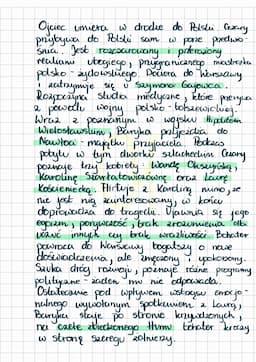 Ojciec umiera w drodze do Polski. Cezary
przybywa do Polski sam w porze przedwio-
śnia. Jest rozczarowany i przerażony
realiami ubogiego, przygranicznego miasteczka
polsko-żydowskiego. Dociera do Warszawy
i zatrzymuje się u Szymona Gajowca.
Rozpoczyna studia medyczne, które przerywa
z powodu wojny polsko-bolszewickiej.
Wraz z poznanym w wojsku Hipolitem
Wielosławskim, Baryka przyjeżdża do
Nawłoci - majątku przyjaciela. Podczas
pobytu w tym dworku szlacheckim Cezary
poznaje trzy kobiety: Wandę Okszyńską,
Karolinę Szarłatowiczównę oraz Laurę
Kościeniecką. Flirtuje z Karoliną mimo, że
nie jest nią zainteresowany, w końcu
doprowadza do tragedii. Ujawnia się jego
egoizm, porywczość, brak zrozumienia dla
uczuć innych czy brak wrażliwości. Bohater
powraca do Warszawy bogatszy o nowe
doświadczenia, ale zmęczony i
Szuka drogi rozwoju, poznaje różne programy
polityczne - żaden mu nie odpowiada.
Ostatecznie pod wpływem wstrząsu emocjo-
nalnego wywołanym spotkaniem z Laurą,
Baryka staje po stronie krzywdzonych,
na czele zbiedzonego tłumu bohater kroczy
w stronę szeregu żołnierzy.